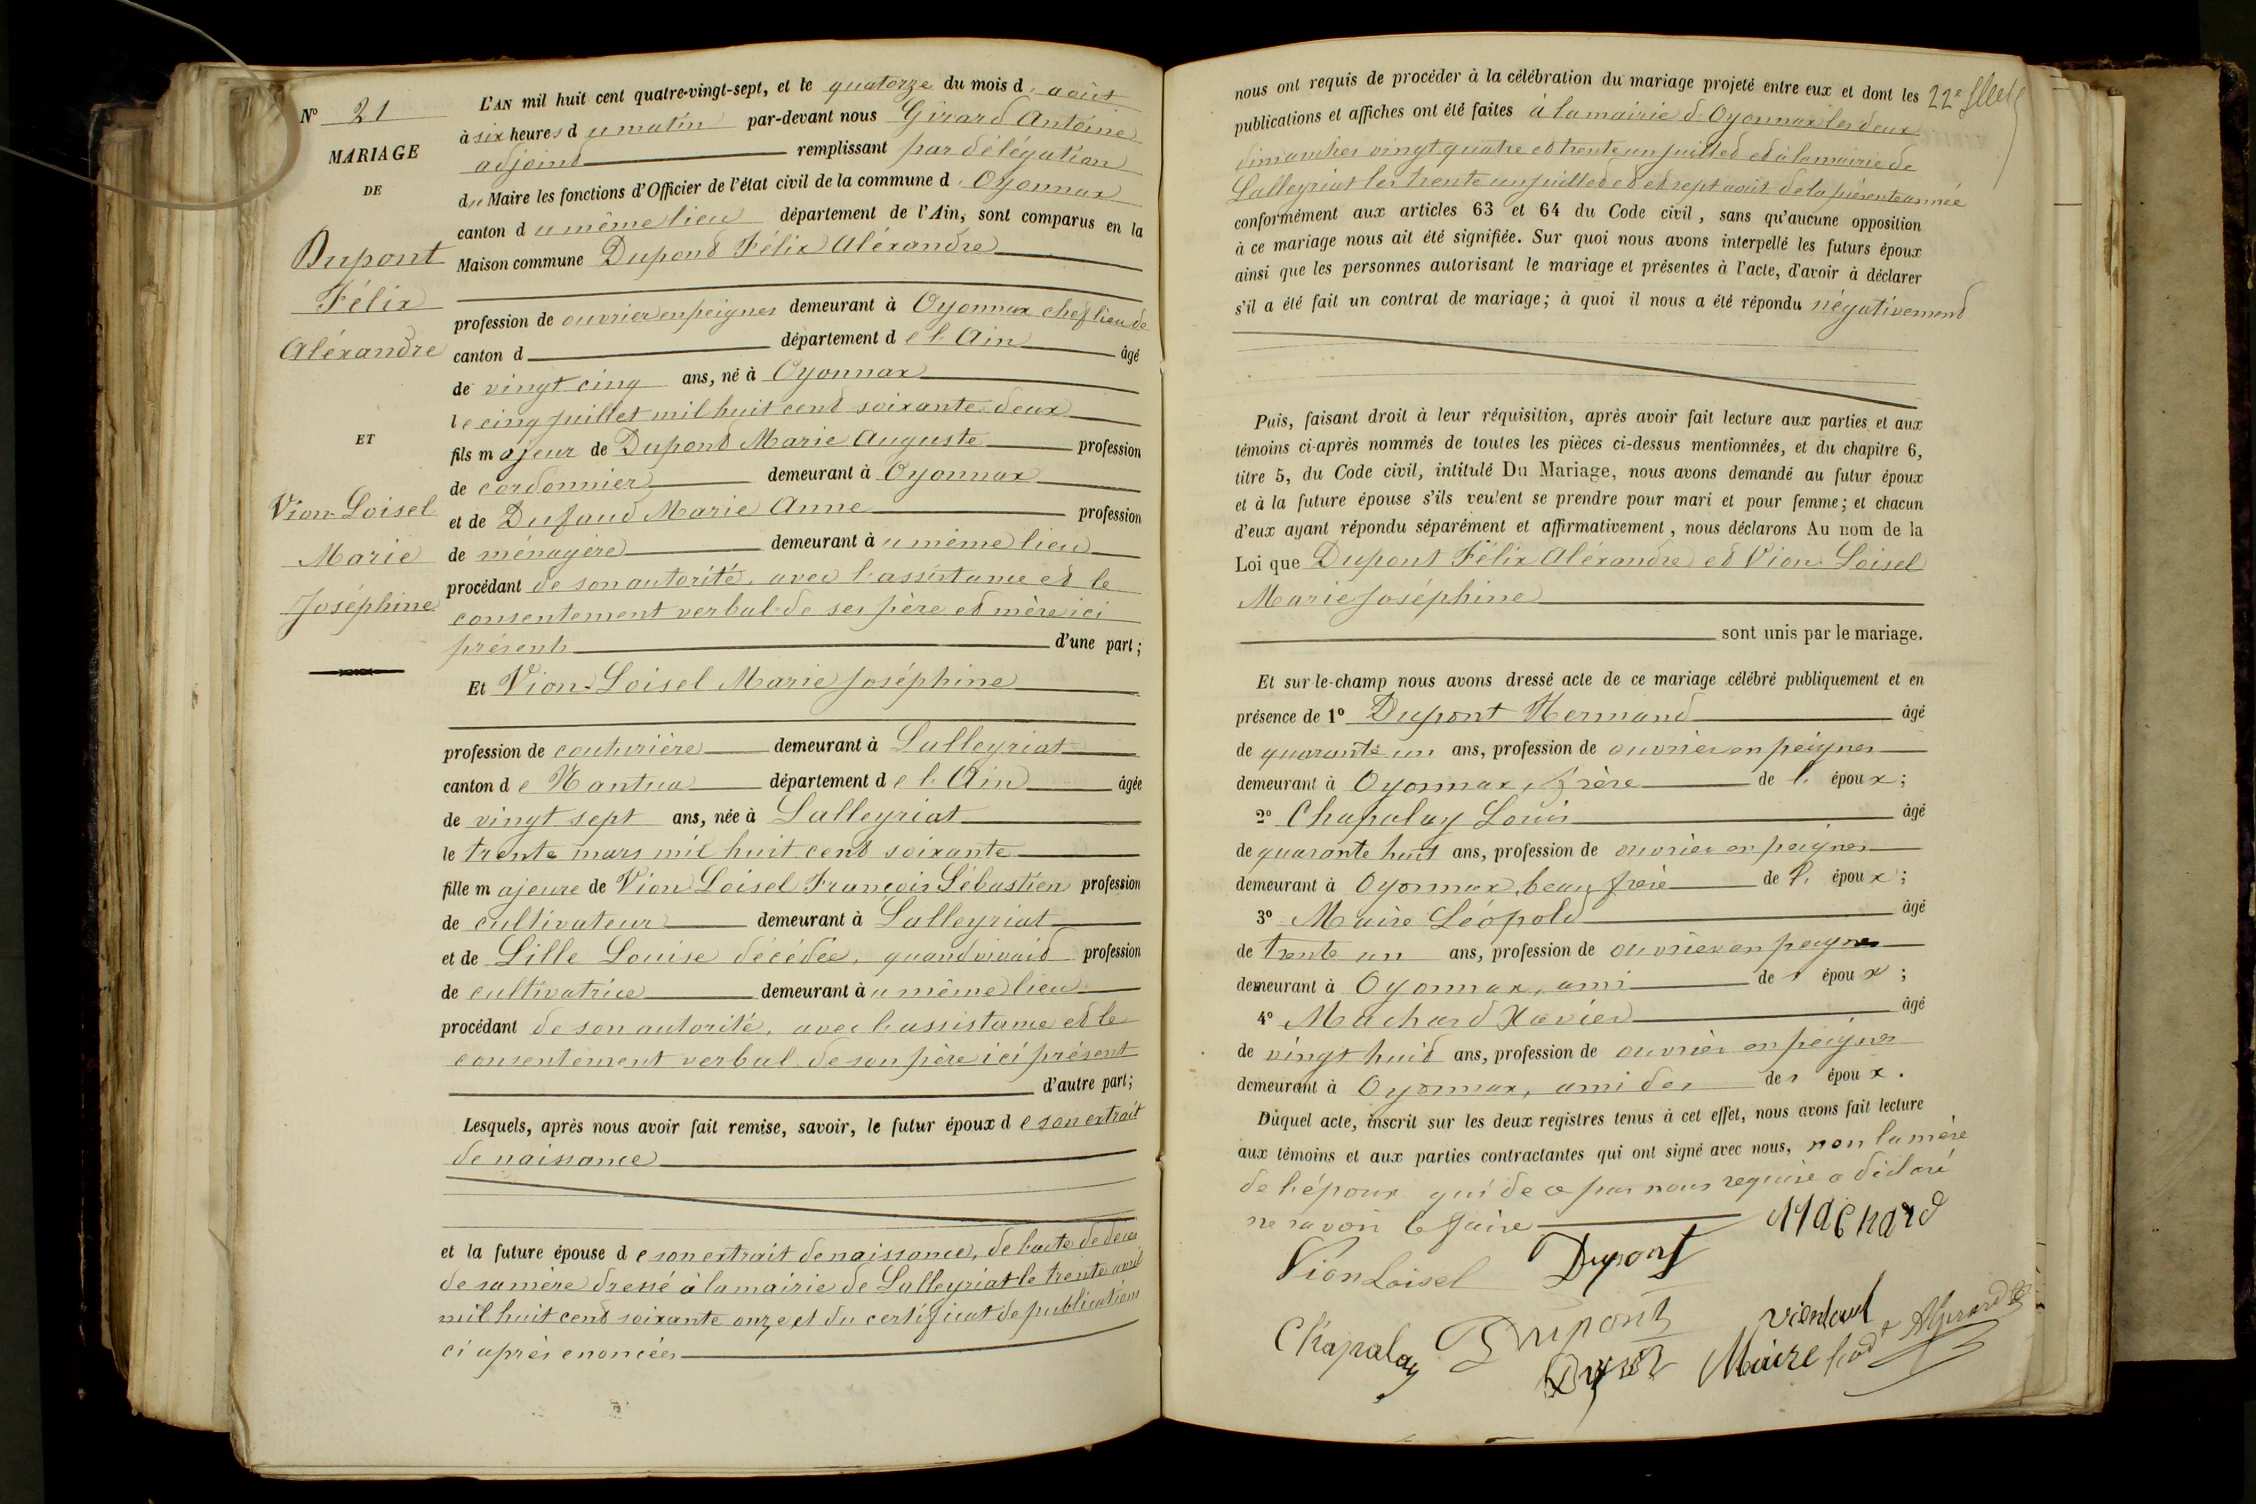 N° 21
MARIAGE
DE
Dupont
Félix
Aléxandre
ET
Vion-Loisel
Marie
Joséphine
L'AN mil huit cent quatre-vingt-sept, et le quatorze du mois d' août
à six heures du matin par-devant nous Girard Antoine
adjoint remplissant par délégation
du Maire les fonctions d'Officier de l'état civil de la commune d' Oyonnax
canton du même lieu département de l'Ain, sont comparus en la
Maison commune Dupont Félix Aléxandre
profession de ouvrier en peignes demeurant à Oyonnax chef lieu de
canton d département de l'Ain âgé
de vingt cinq ans, né à Oyonnax
le cinq juillet mil huit cent soixante deux
fils majeur de Dupont Marie Auguste profession
de cordonnier demeurant à Oyonnax
et de Dufaud Marie Anne profession
de ménagère demeurant au même lieu
procédant de son autorité, avec l'assistance et le
consentement verbal de ses père et mère ici
présents d'une part;
Et Vion-Loisel Marie Joséphine
profession de couturière demeurant à Lalleyriat
canton de Nantua département de l'Ain âgée
de vingt sept ans, née à Lalleyriat
le trente mars mil huit cent soixante
fille majeure de Vion Loisel François Sébastien profession
de cultivateur demeurant à Lalleyriat
et de Lille Louise décédée, quand vivait profession
de cultivatrice demeurant au même lieu
procédant de son autorité, avec l'assistance et le
consentement verbal de son père ici présent
d'autre part;
Lesquels, après nous avoir fait remise, savoir, le futur époux de son extrait
de naissance
et la future épouse de son extrait de naissance, de l'acte de décès
de sa mère dressé à la mairie de Lalleyriat le trente avril
mil huit cent soixante onze et du certificat de publications
ci après énoncées
nous ont requis de procéder à la célébration du mariage projeté entre eux et dont les
22e
publications et affiches ont été faites à la mairie d'Oyonnax les deux
dimanches vingt quatre et trente un juillet et à la mairie de
Lalleyriat les trente un juillet et sept août de la présente année
conformément aux articles 63 et 64 du Code civil, sans qu'aucune opposition
à ce mariage nous ait été signifiée. Sur quoi nous avons interpellé les futurs époux
ainsi que les personnes autorisant le mariage et présentes à l'acte, d'avoir à déclarer
s'il a été fait un contrat de mariage; à quoi il nous a été répondu négativement
Puis, faisant droit à leur réquisition, après avoir fait lecture aux parties et aux
témoins ci-après nommés de toutes les pièces ci-dessus mentionnées, et du chapitre 6,
titre 5, du Code civil, intitulé Du Mariage, nous avons demandé au futur époux
et à la future épouse s'ils veulent se prendre pour mari et pour femme; et chacun
d'eux ayant répondu séparément et affirmativement, nous déclarons Au nom de la
Loi que Dupont Félix Aléxandre et Vion-Loisel
Marie Joséphine
sont unis par le mariage.
Et sur-le-champ nous avons dressé acte de ce mariage célébré publiquement et en
présence de 1° Dupont Hermand âgé
de quarante un ans, profession de ouvrier en peignes
demeurant à Oyonnax, frère de l' époux;
2° Chapalay Louis âgé
de quarante huit ans, profession de ouvrier en peignes
demeurant à Oyonnax, beau frère de l' époux;
3° Maire Léopold âgé
de trente un ans, profession de ouvrier en peignes
demeurant à Oyonnax, ami des époux;
4° Machard Xavier âgé
de vingt huit ans, profession de ouvrier en peignes
demeurant à Oyonnax, ami des des époux.
Duquel acte, inscrit sur les deux registres tenus à cet effet, nous avons fait lecture
aux témoins et aux parties contractantes qui ont signé avec nous, non la mère
de l'époux qui de ce par nous requise a déclaré
ne savoir le faire
Machard
Vion Loisel Dupont
Chapalay Dupont
Dupont Maire AGirard